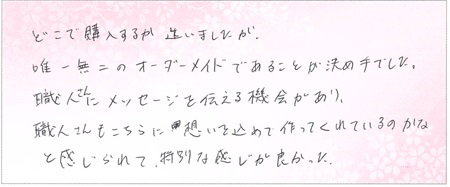 どこで購入するか迷いましたが、
唯一無二のオーダーメイドであることが決め手でした。
職人さんにメッセージを伝える機会があり、
職人さんもこちらに想いを込めて作ってくれているのかな
と感じられて、特別な感じが良かった。